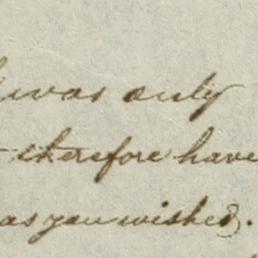 was only
therefore have
as you wished.